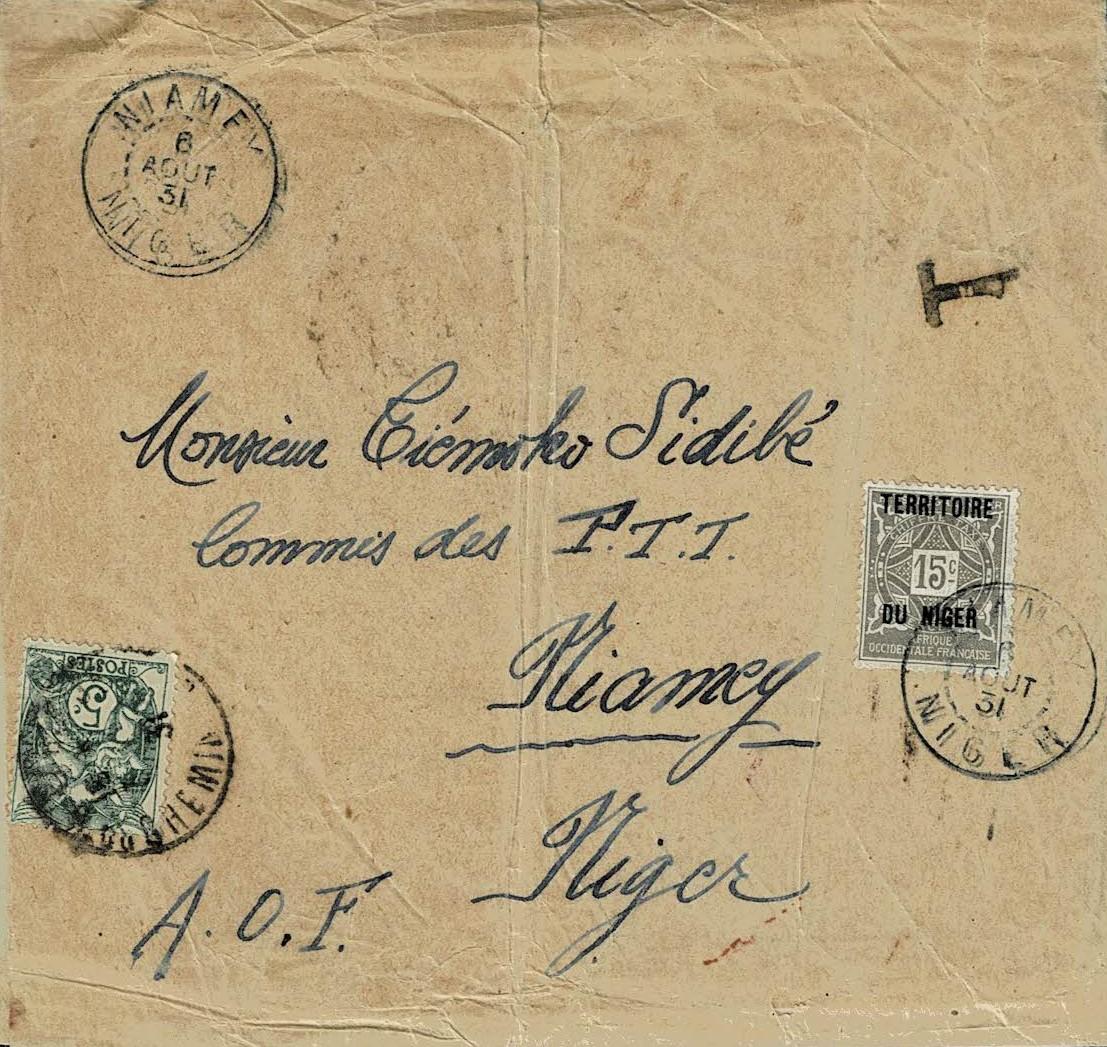 NIAMEY
6
AOUT
31
NIGER
T
Monsieur Tiémoko Sidibé
Commis des P.T.T.
TERRITOIRE
CHIFFRE TAXE
15c
DU NIGER
AFRIQUE
OCCIDENTALE FRANÇAISE
Niamey
POSTES
5c
NIAMEY
AOUT
31
NIGER
Niger
A.O.F.